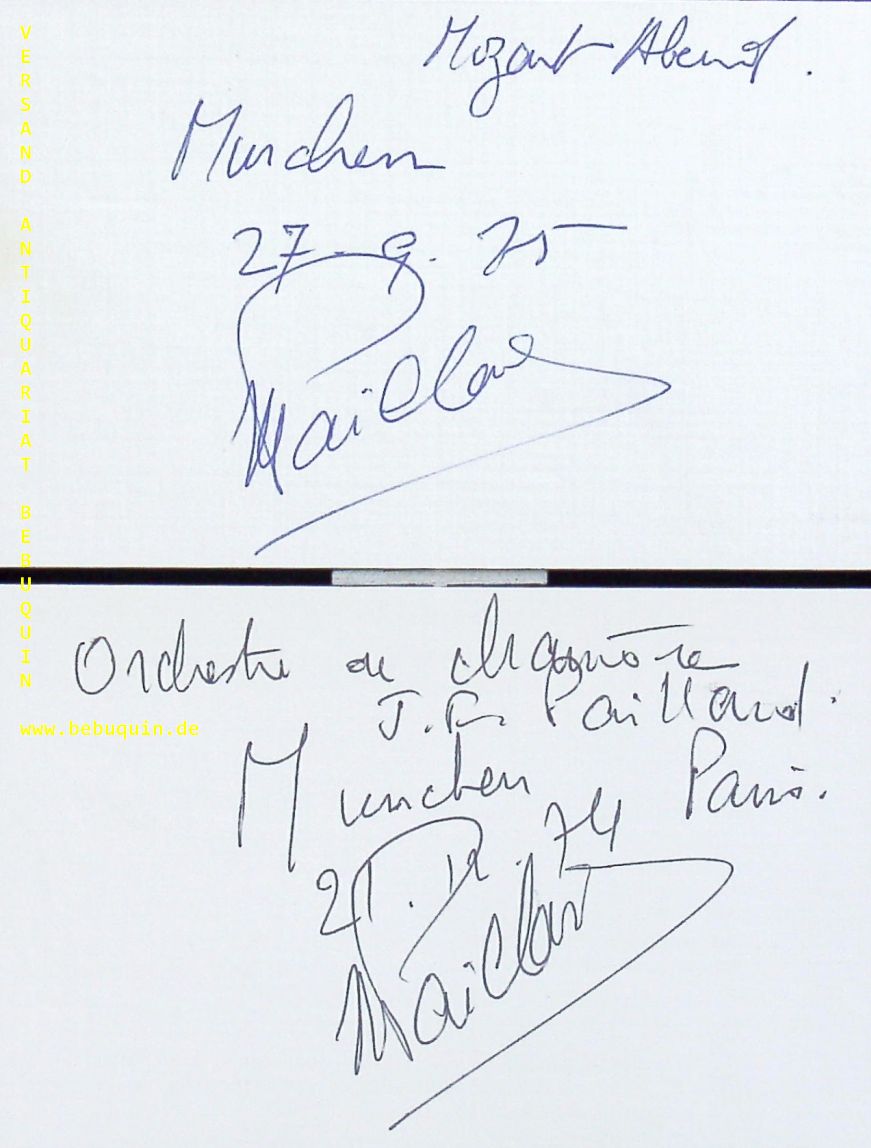 Mozart Abend.
Munchen
27-9.75
Paillard
Orchestre de chambre
J.F. Paillard.
Munchen Paris.
21.12.74
Paillard
VERSAND ANTIQUARIAT BEBUQUIN
www.bebuquin.de